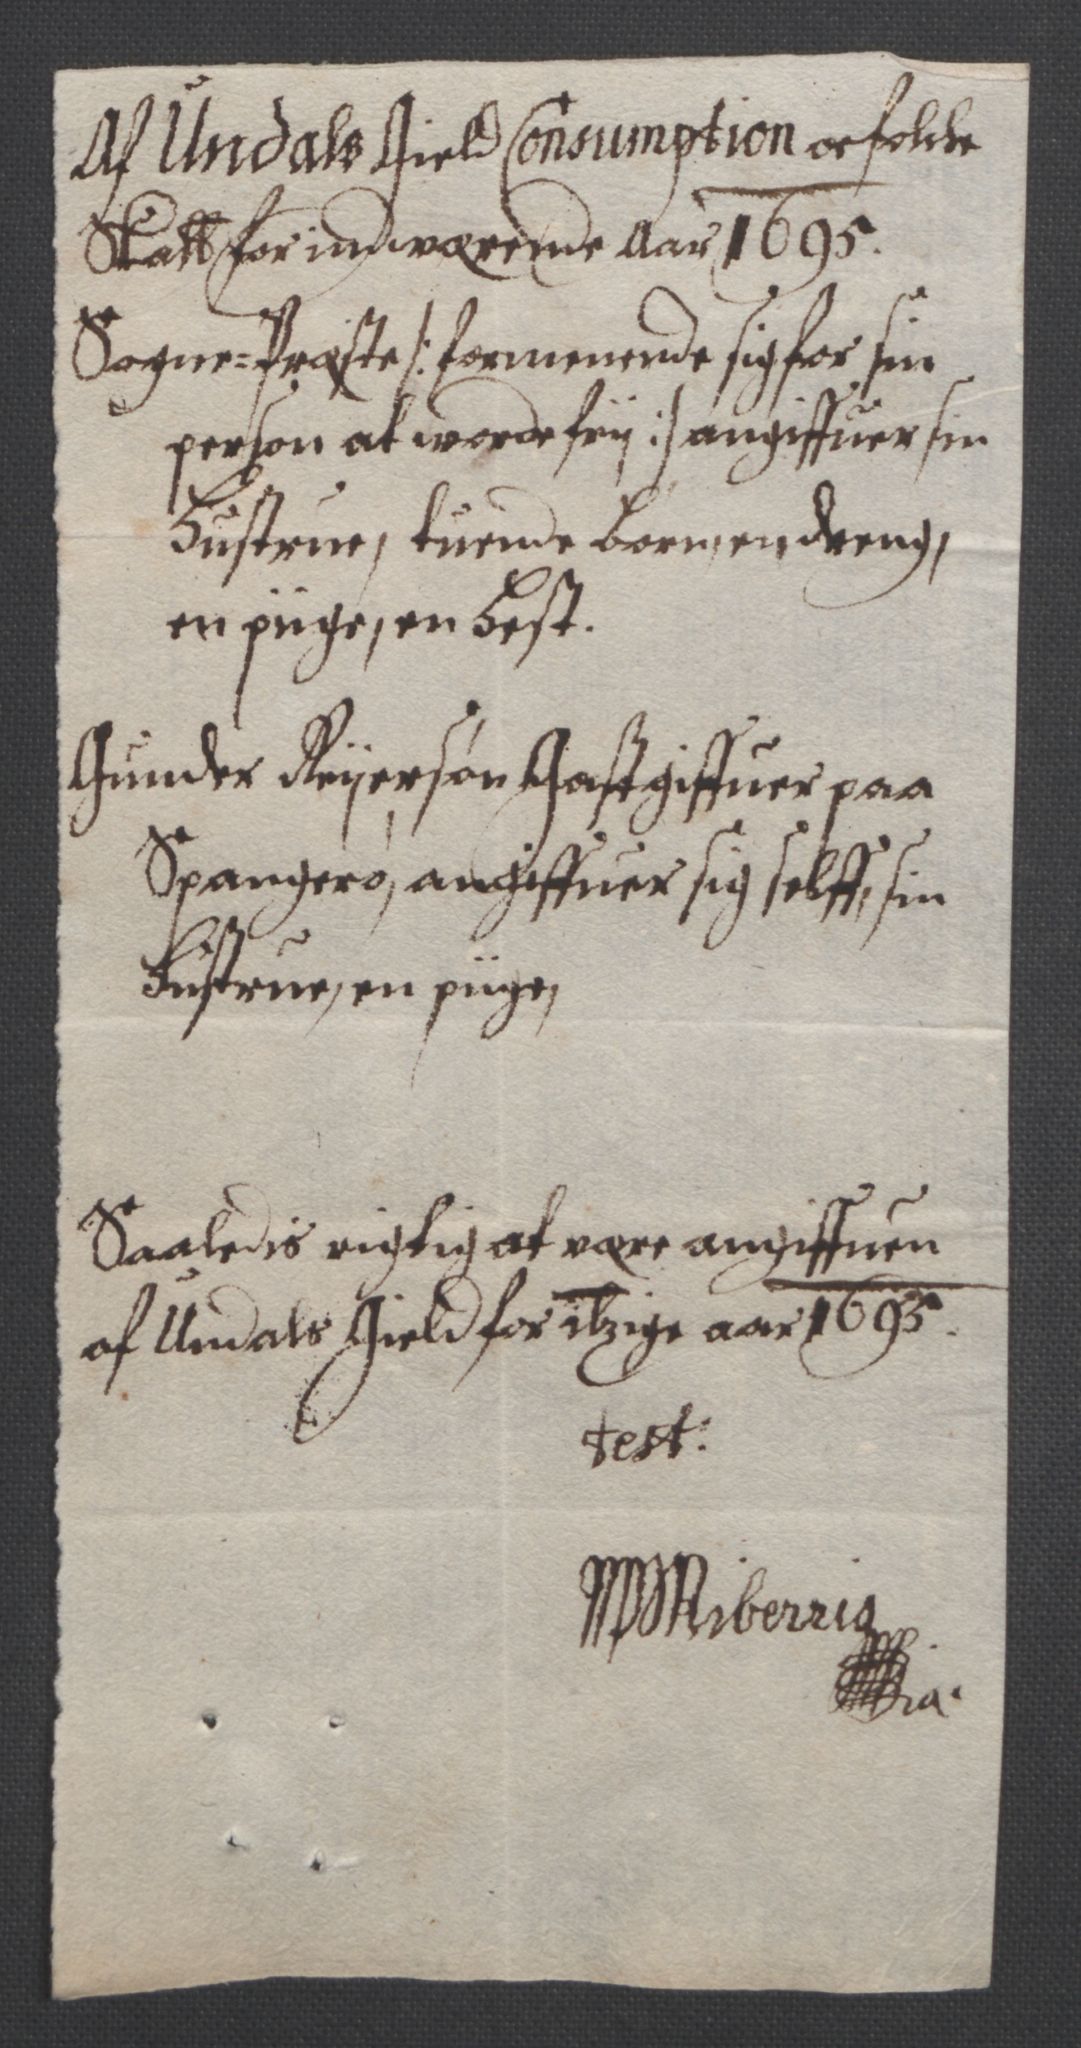 Af Undals Gield Consumption oc folche
Skatt for indværende Aar 1695.
Sogne=Præste /: formenende sig for sin
person at worde frij :/ angiffuer sin
Hustrue, tuende børn, en dreng,
en piige, en Hest.
Gunder Reijersøn Gastgiffuer paa
Spangerø, angiffuer sig selff, sin
Hustrue, en piige,
Saaledis rigtig at være angiffuen
af Undals Gield for itzige aar 1695.
test:
Riberrig